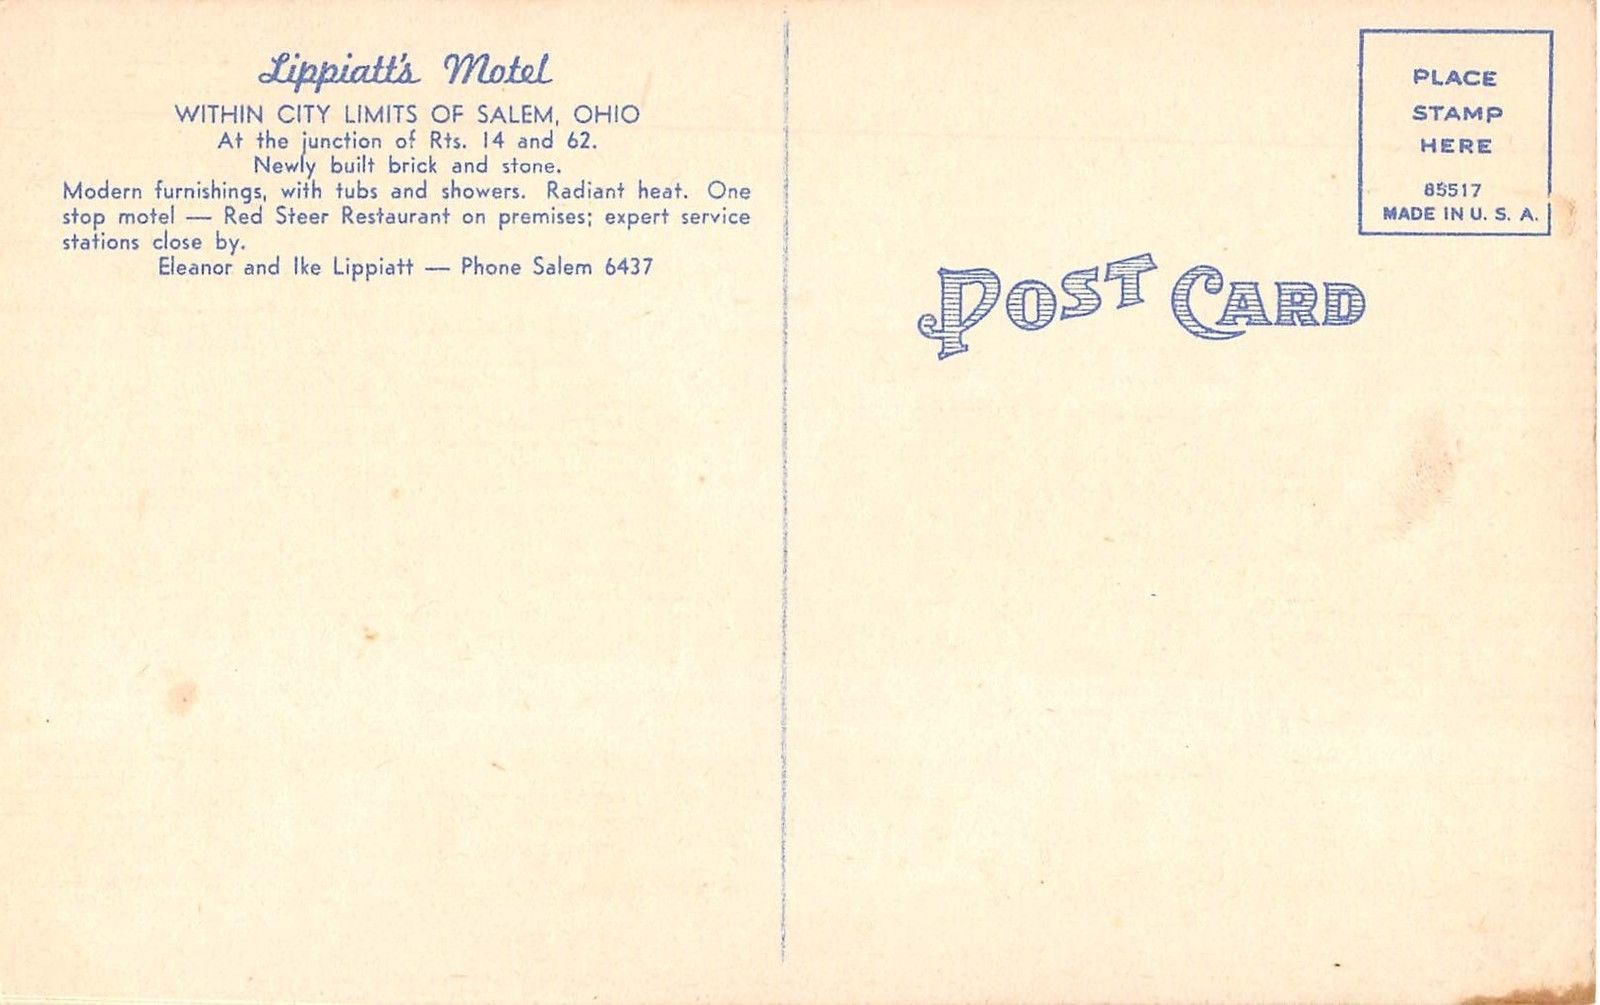 Lippiatt's Motel
WITHIN CITY LIMITS OF SALEM, OHIO
At the junction of Rts. 14 and 62.
Newly built brick and stone.
Modern furnishings, with tubs and showers. Radiant heat. One
stop motel — Red Steer Restaurant on premises; expert service
stations close by.
Eleanor and Ike Lippiatt — Phone Salem 6437
PLACE
STAMP
HERE
85517
MADE IN U. S. A.
POST CARD